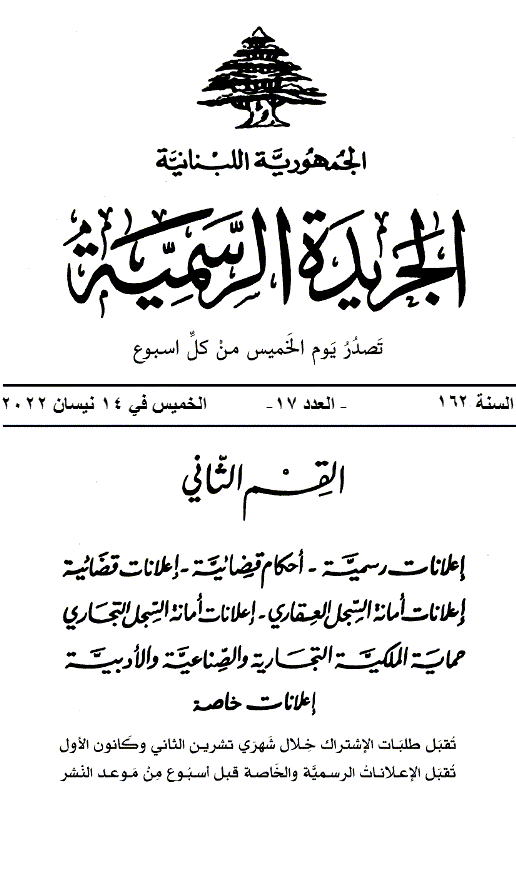 الجُمهُوريَّة اللبْنانيَّة
الجَريدَة الرسَّميَّة
تَصدُرُ يَوم الخَميس منْ كلِّ اسبوع
السنة ١٦٢ - العدد ١٧- الخميس في ١٤ نيسان ٢٠٢٢
القِسْم الثّاني
إعلانات رسميَّة - أحكام قضائيَّة - إعلانات قضائية
إعلانات أمانة السِّجل العقاري - إعلانات أمانة السِّجل التجاري
حماية الملكيَّة التجارية والصِّناعيَّة والأدبيَّة
إعلانات خاصة
تُقبَل طلبَات الإشتراك خِلال شَهرَي تشرين الثاني وكَانون الأول
تُقبَل الإعلانات الرسميَّة والخَاصة قبل أسبُوع مِنْ مَوعد النَشر